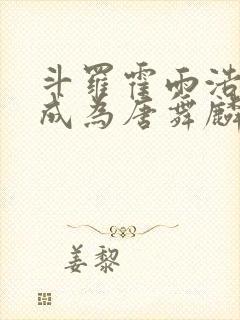 斗罗霍雨浩
成为唐舞麟
姜黎